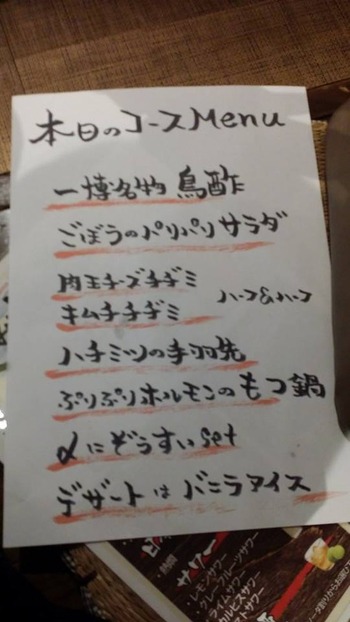 本日のコースMenu
一博名物 鳥酢
ごぼうのパリパリサラダ
肉玉チーズチヂミ
キムチチヂミ
ハーフ&ハーフ
ハチミツの手羽先
ぷりぷりホルモンのもつ鍋
〆にぞうすいset
デザートはバニラアイス
サワー
・レモンサワー
・グレープフルーツサワー
・ライムサワー
・カルピスサワー